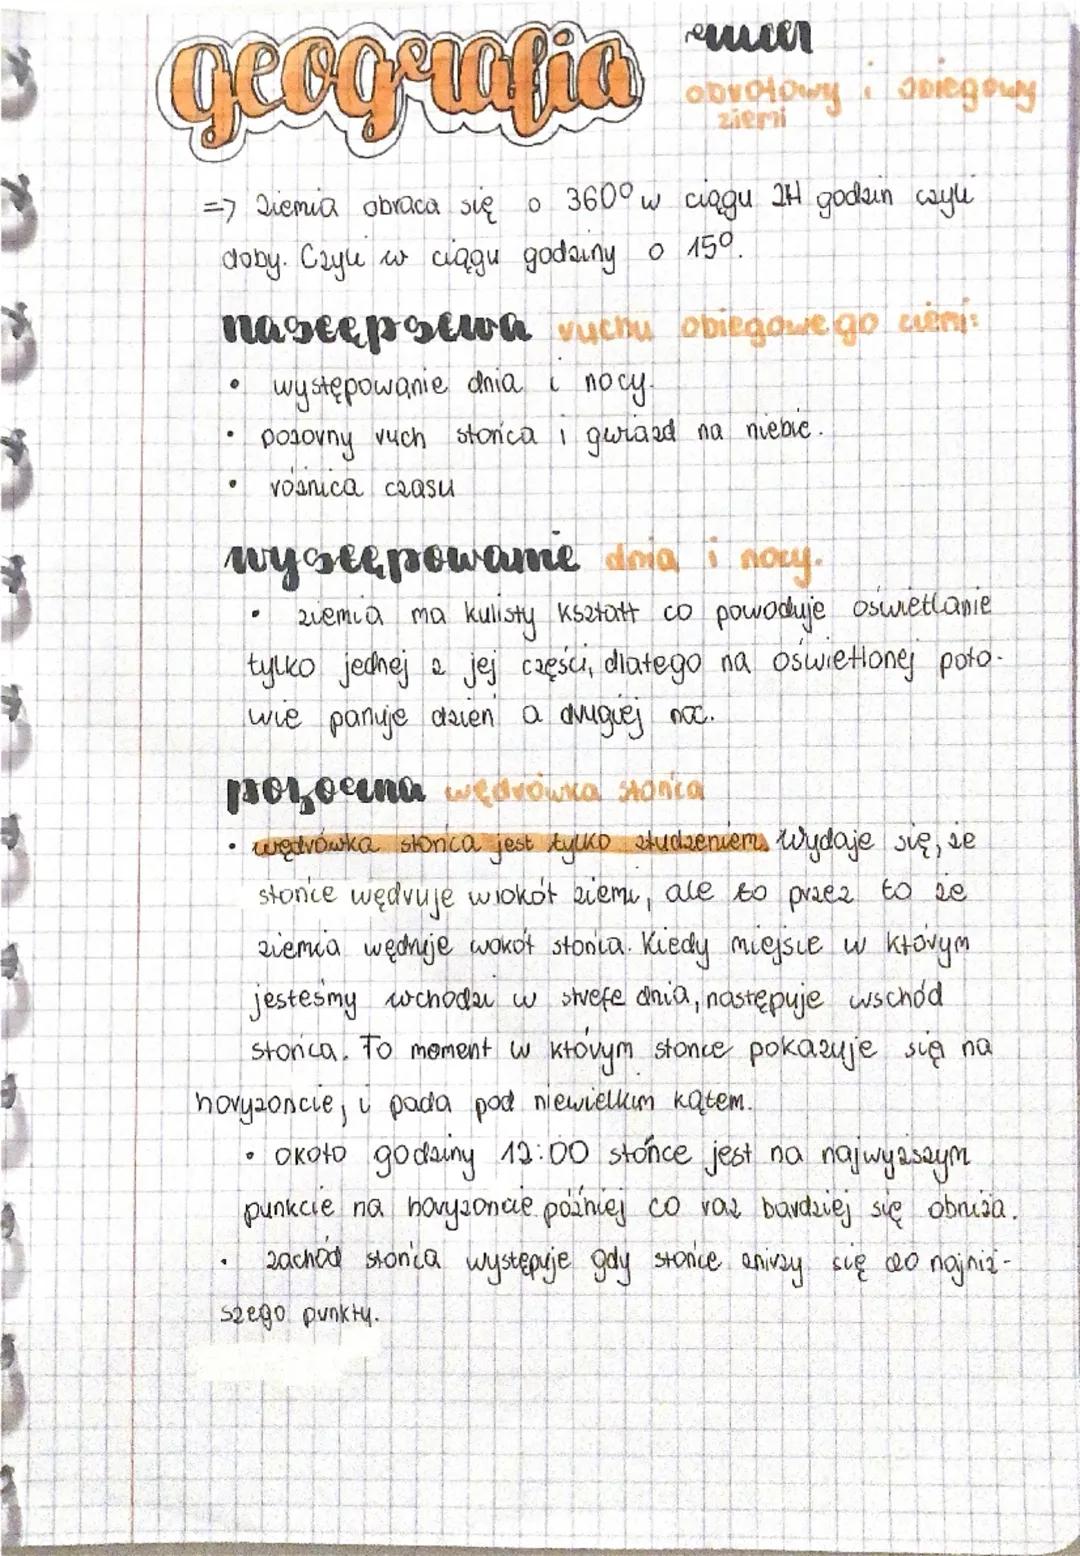 geografia
ruch
obrotowy i obiegowy
ziemi
=> Ziemia obraca się o 360° w ciągu 24 godzin czyli
doby. Czyli w ciągu godziny o 15°.
następstwa ruchu obiegowego ziemi:
• występowanie dnia i nocy.
• pozorny ruch słońca i gwiazd na niebie.
• różnica czasu
występowanie dnia i nocy.
• ziemia ma kulisty kształt co powoduje oświetlanie
tylko jednej z jej części, dlatego na oświetlonej poło-
wie panuje dzień a drugiej noc.
pozorna wędrówka słońca
• wędrówka słońca jest tylko złudzeniem. Wydaje się, że
słońce wędruje wokół ziemi, ale to przez to że
ziemia wędruje wokół słońca. Kiedy miejsce w którym
jesteśmy wchodzi w strefe dnia, następuje wschód
słońca. To moment w którym słonce pokazuje się na
horyzoncie, i pada pod niewielkim kątem.
• około godziny 12:00 słońce jest na najwyższym
punkcie na horyzoncie później co raz bardziej się obniża.
• zachód słońca występuje gdy słońce zniży się do najniż-
szego punktu.